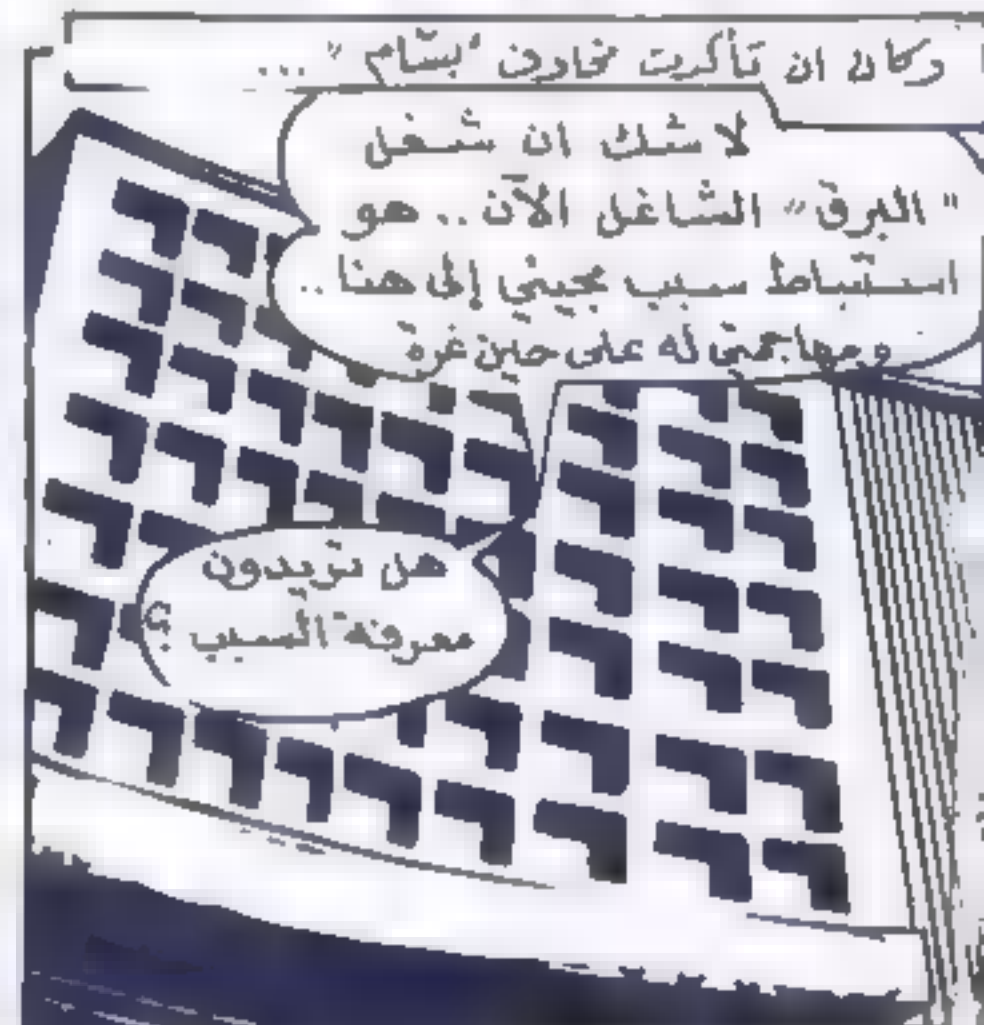 وكان ان تأكدت مخاوف "بسّام" ...
لا شك ان شغل
"البرق" الشاغل الآن .. هو
استنباط سبب مجيئي إلى هنا ..
ومهاجمتي له على حين غرة
هل تريدون
معرفة السبب ؟